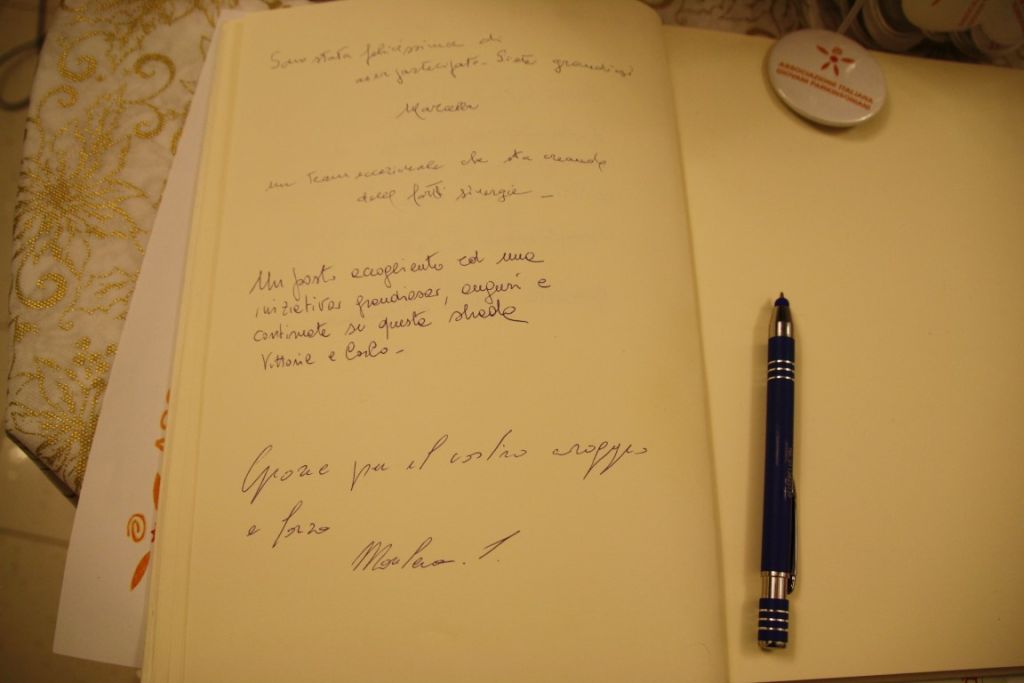 Sono stata felicissima di
aver partecipato - Siete grandiosi
Marcella
un Team eccezionale che sta creando
delle forti sinergie -
Un posto accogliente ed una
iniziativa grandiosa, auguri e
continuate su questa strada
Vittoria e Carlo -
Grazie per il vostro coraggio
e forza
ASSOCIAZIONE ITALIANA
GIOVANI PARKINSONIANI